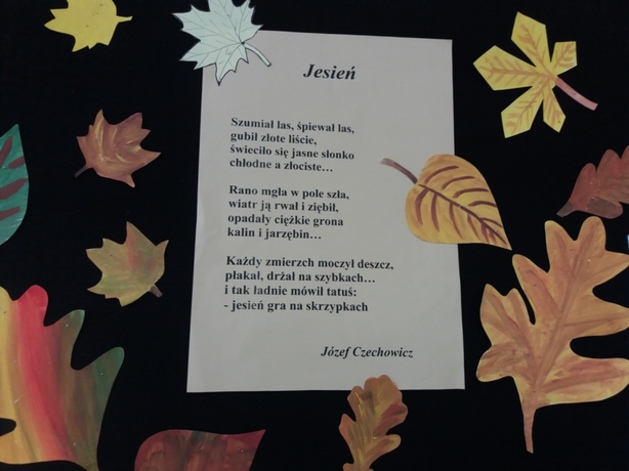 Jesień
Szumiał las, śpiewał las,
gubił złote liście,
świeciło się jasne słonko
chłodne a złociste...
Rano mgła w pole szła,
wiatr ją rwał i ziębił,
opadały ciężkie grona
kalin i jarzębin...
Każdy zmierzch moczył deszcz,
płakał, drżał na szybkach...
i tak ładnie mówił tatuś:
- jesień gra na skrzypkach
Józef Czechowicz